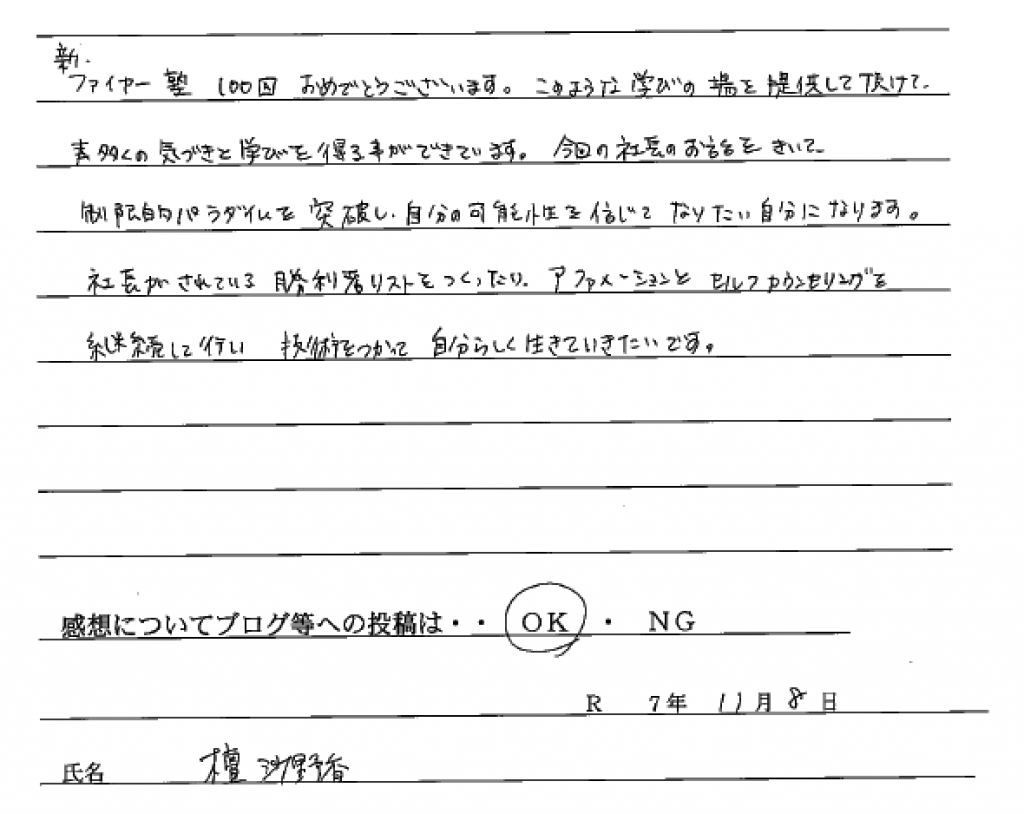 新.
ファイヤー塾 100回 おめでとうございます。このような学びの場を提供して頂けて、
数多くの気づきと学びを得る事ができています。今回の社長のお話をきいて、
制限的パラダイムを突破し、自分の可能性を信じてなりたい自分になります。
社長がされている勝利者リストをつくったり、アファメーションとセルフカウンセリングを
継続して行い 技術をつかって 自分らしく生きていきたいです。
感想についてブログ等への投稿は・・ OK ・ NG
R 7年 11月 8日
氏名 檀 沙野香